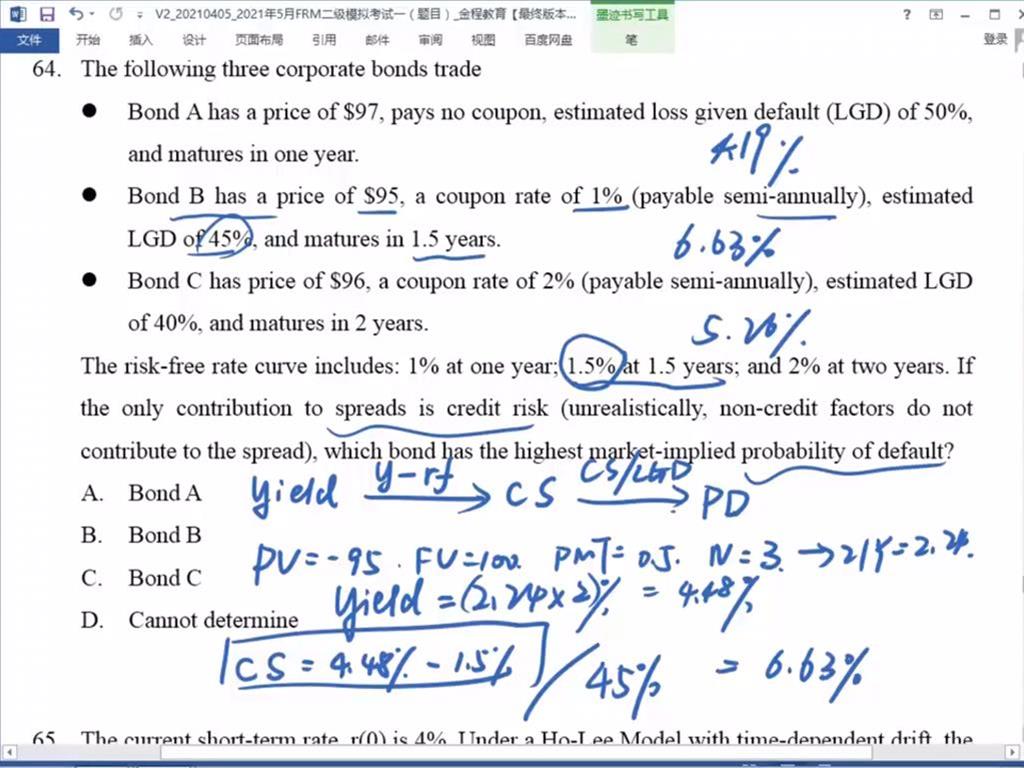 V2_20210405_2021年5月FRM二级模拟考试一（题目）_金程教育【最终版本...
墨迹书写工具
文件 开始 插入 设计 页面布局 引用 邮件 审阅 视图 百度网盘 笔 登录
64. The following three corporate bonds trade
● Bond A has a price of $97, pays no coupon, estimated loss given default (LGD) of 50%,
and matures in one year.
4.19%
● Bond B has a price of $95, a coupon rate of 1% (payable semi-annually), estimated
LGD of 45%, and matures in 1.5 years.
6.63%
● Bond C has price of $96, a coupon rate of 2% (payable semi-annually), estimated LGD
of 40%, and matures in 2 years.
5.26%
The risk-free rate curve includes: 1% at one year; 1.5% at 1.5 years; and 2% at two years. If
the only contribution to spreads is credit risk (unrealistically, non-credit factors do not
contribute to the spread), which bond has the highest market-implied probability of default?
A. Bond A
yield y-rf CS CS/LGD PD
B. Bond B
PV=-95. FV=100 PMT=0.5. N=3. →2IY=2.24.
C. Bond C
yield =(2.24×2)% = 4.48%
D. Cannot determine
CS = 4.48% - 1.5% / 45% = 6.63%
65. The current short-term rate, r(0) is 4%. Under a Ho-Lee Model with time-dependent drift, the